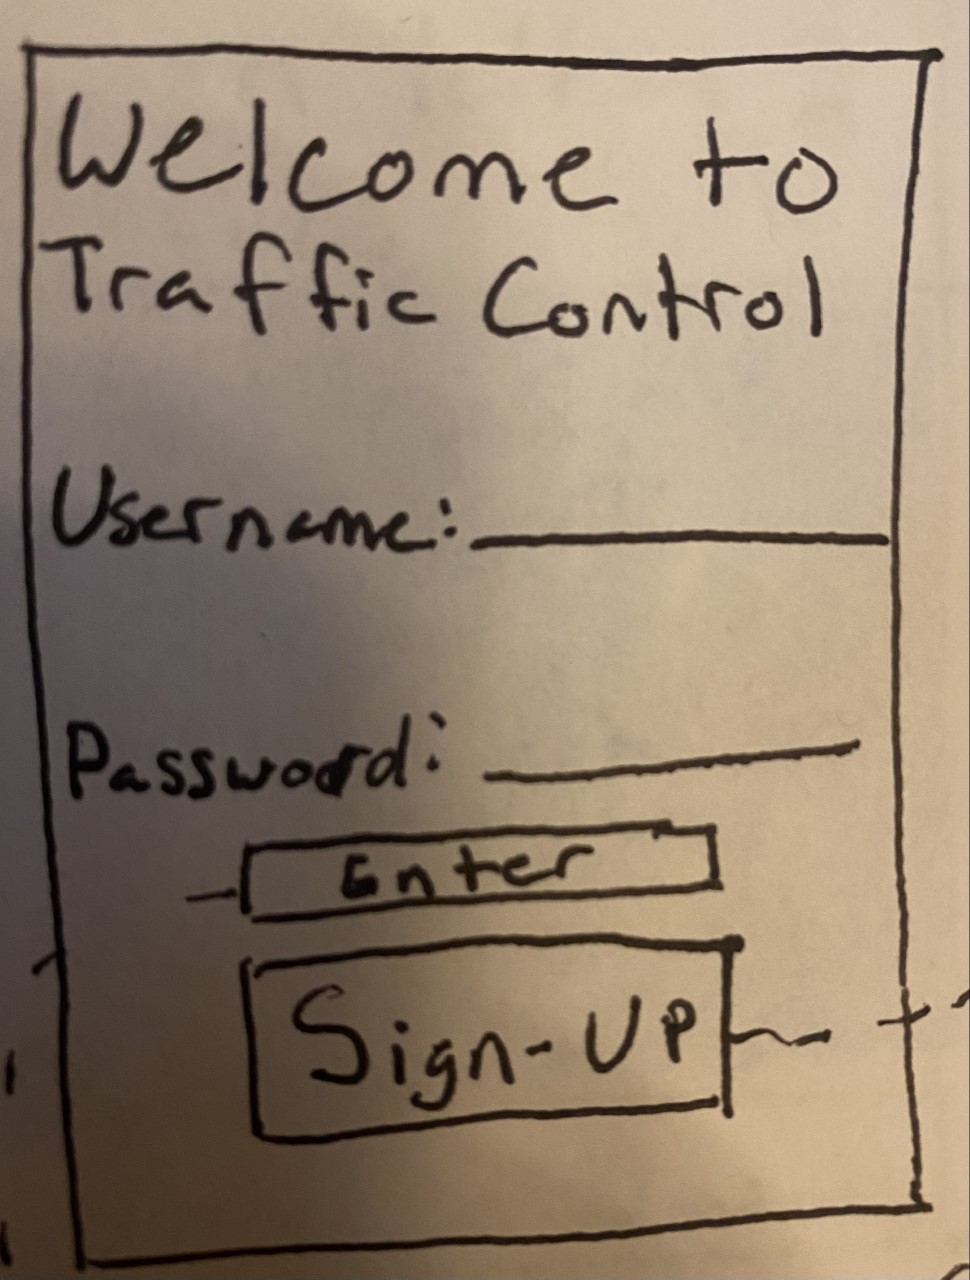 Welcome to
Traffic Control
Username:
Password:
Enter
Sign-UP